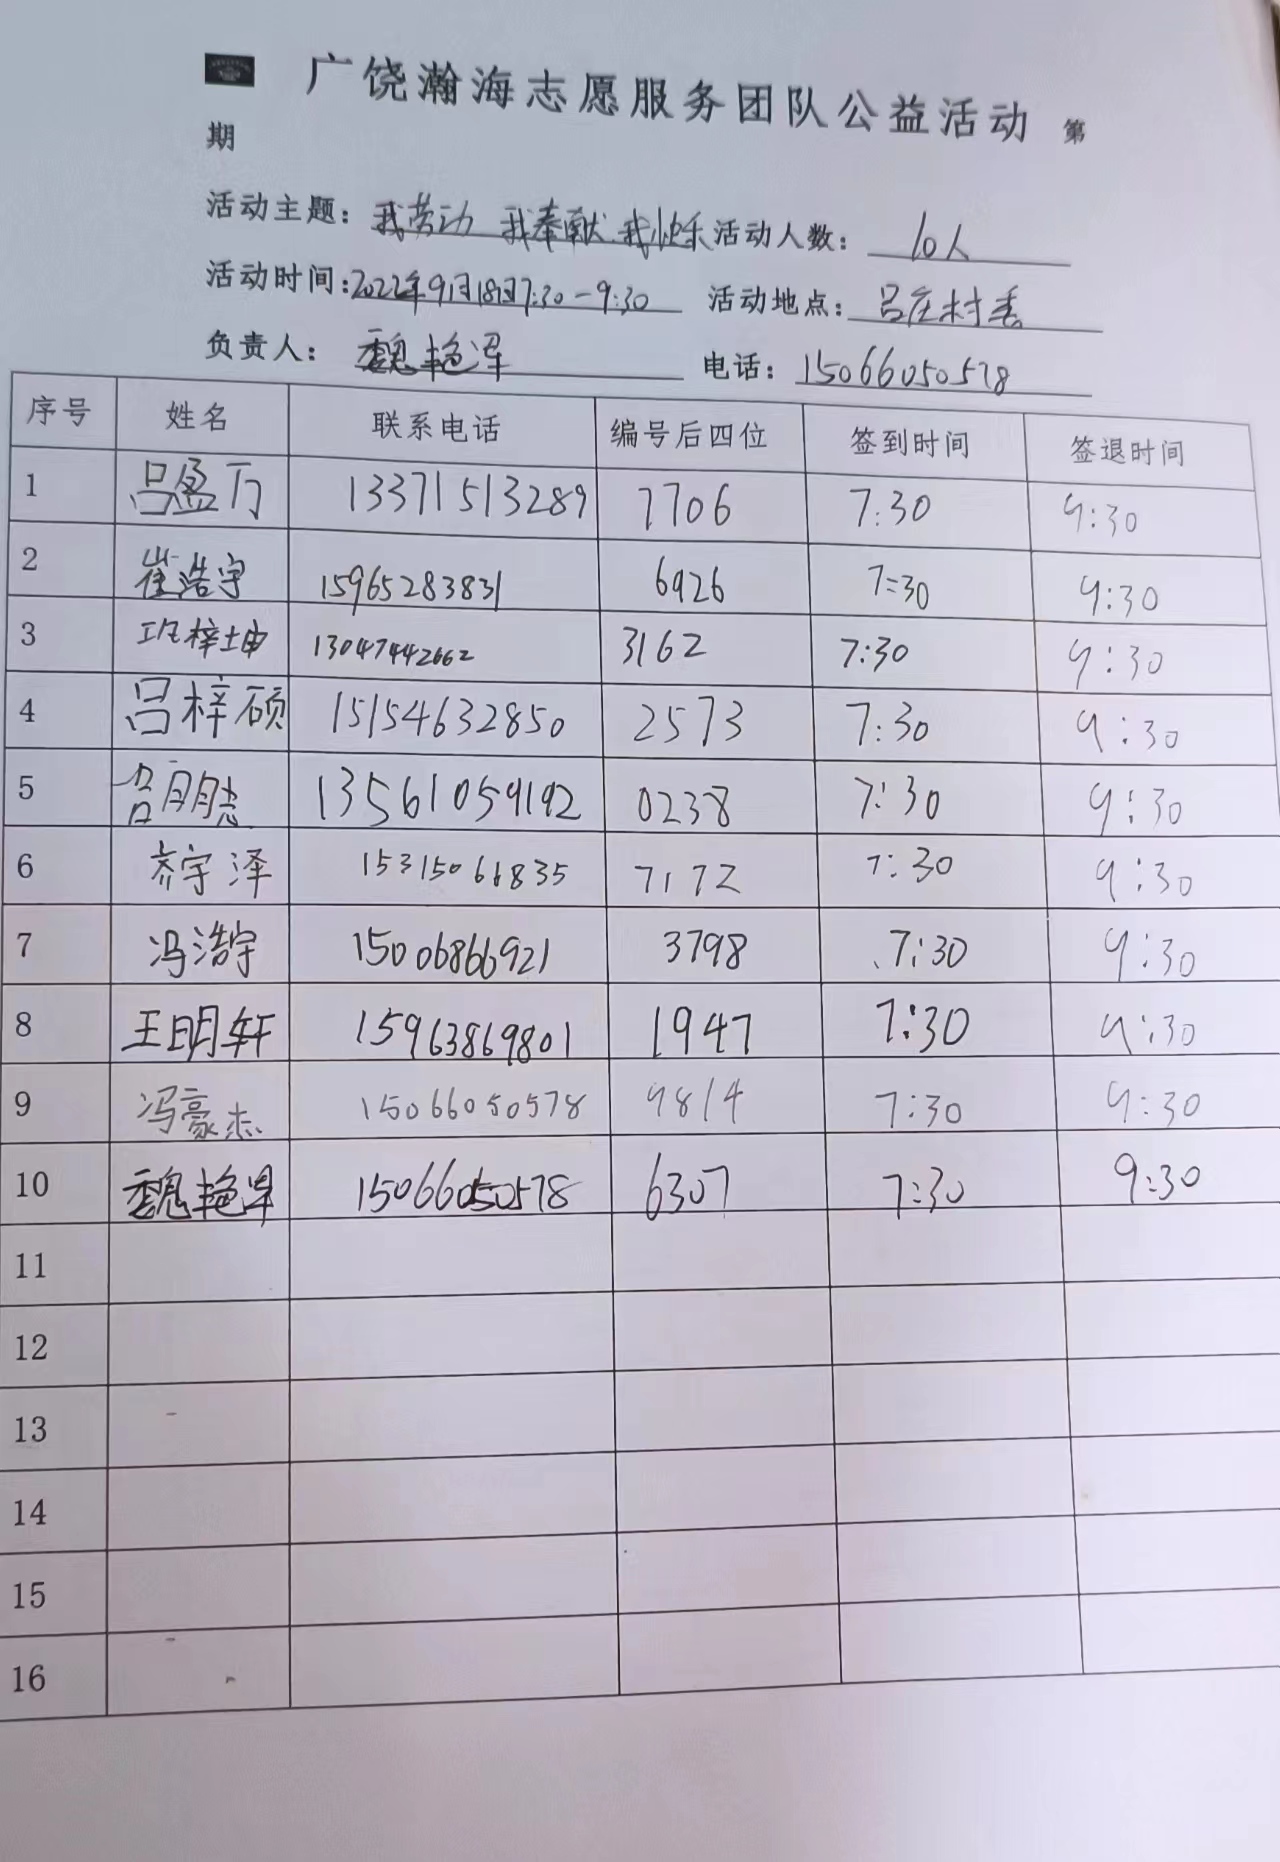 广饶瀚海志愿服务团队公益活动 第
期
活动主题：我劳动 我奉献 我快乐 活动人数：10人
活动时间：2022年9月18日7:30-9:30 活动地点：吕庄村委
负责人：魏艳军 电话：15066050578
序号 姓名 联系电话 编号后四位 签到时间 签退时间
1 吕盈万 13371513289 7706 7:30 9:30
2 崔浩宇 15965283831 6926 7:30 9:30
3 班梓坤 13047442662 3162 7:30 9:30
4 吕梓硕 15154632850 2573 7:30 9:30
5 吕明志 13561059192 0238 7:30 9:30
6 齐宇泽 15315066835 7172 7:30 9:30
7 冯浩宇 15006866921 3798 7:30 9:30
8 王明轩 15963869801 1947 7:30 9:30
9 冯豪杰 15066050578 9814 7:30 9:30
10 魏艳军 15066050578 6307 7:30 9:30
11
12
13
14
15
16